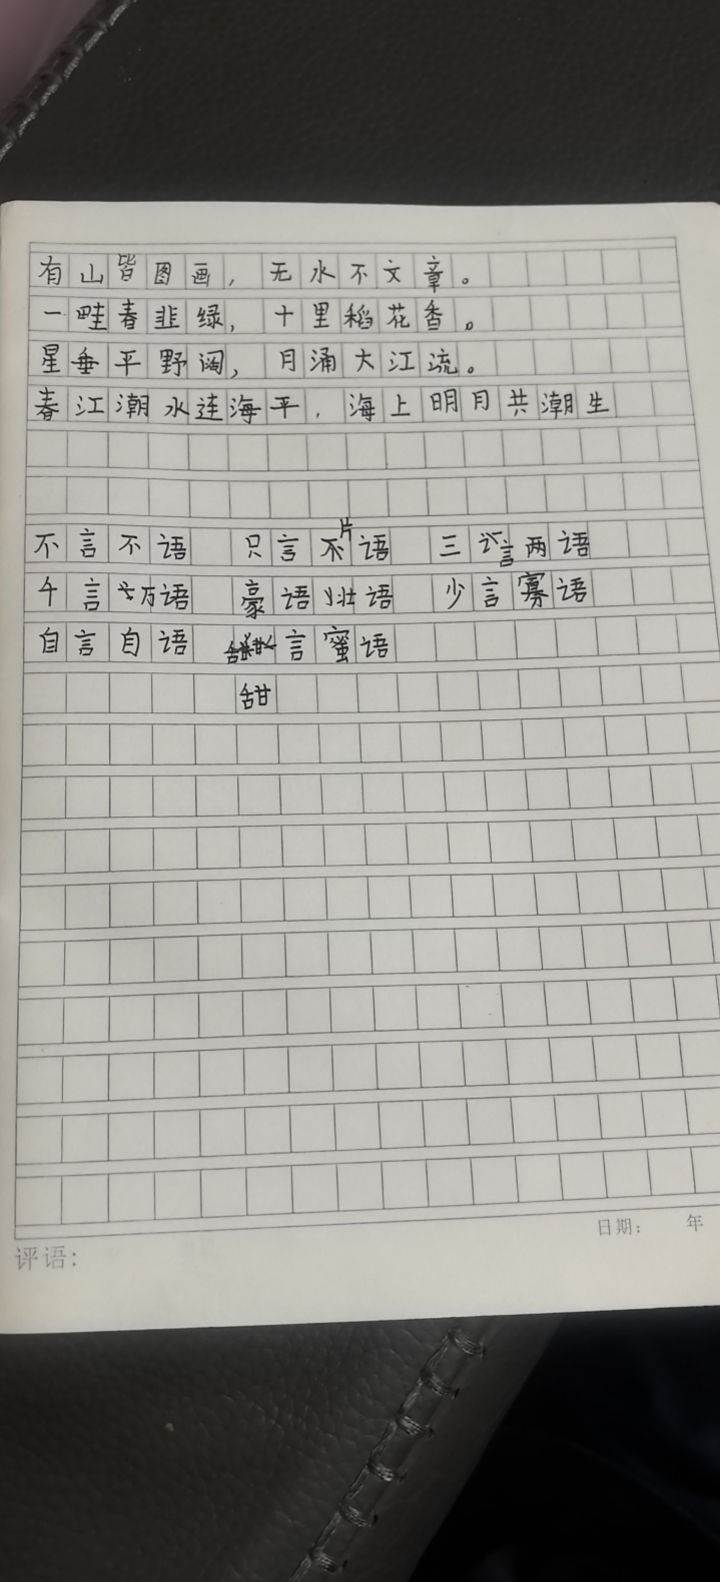 有山皆图画，无水不文章。
一畦春韭绿，十里稻花香。
星垂平野阔，月涌大江流。
春江潮水连海平，海上明月共潮生
不言不语 只言片语 三言两语
千言万语 豪语壮语 少言寡语
自言自语 言蜜语
甜
日期： 年
评语：